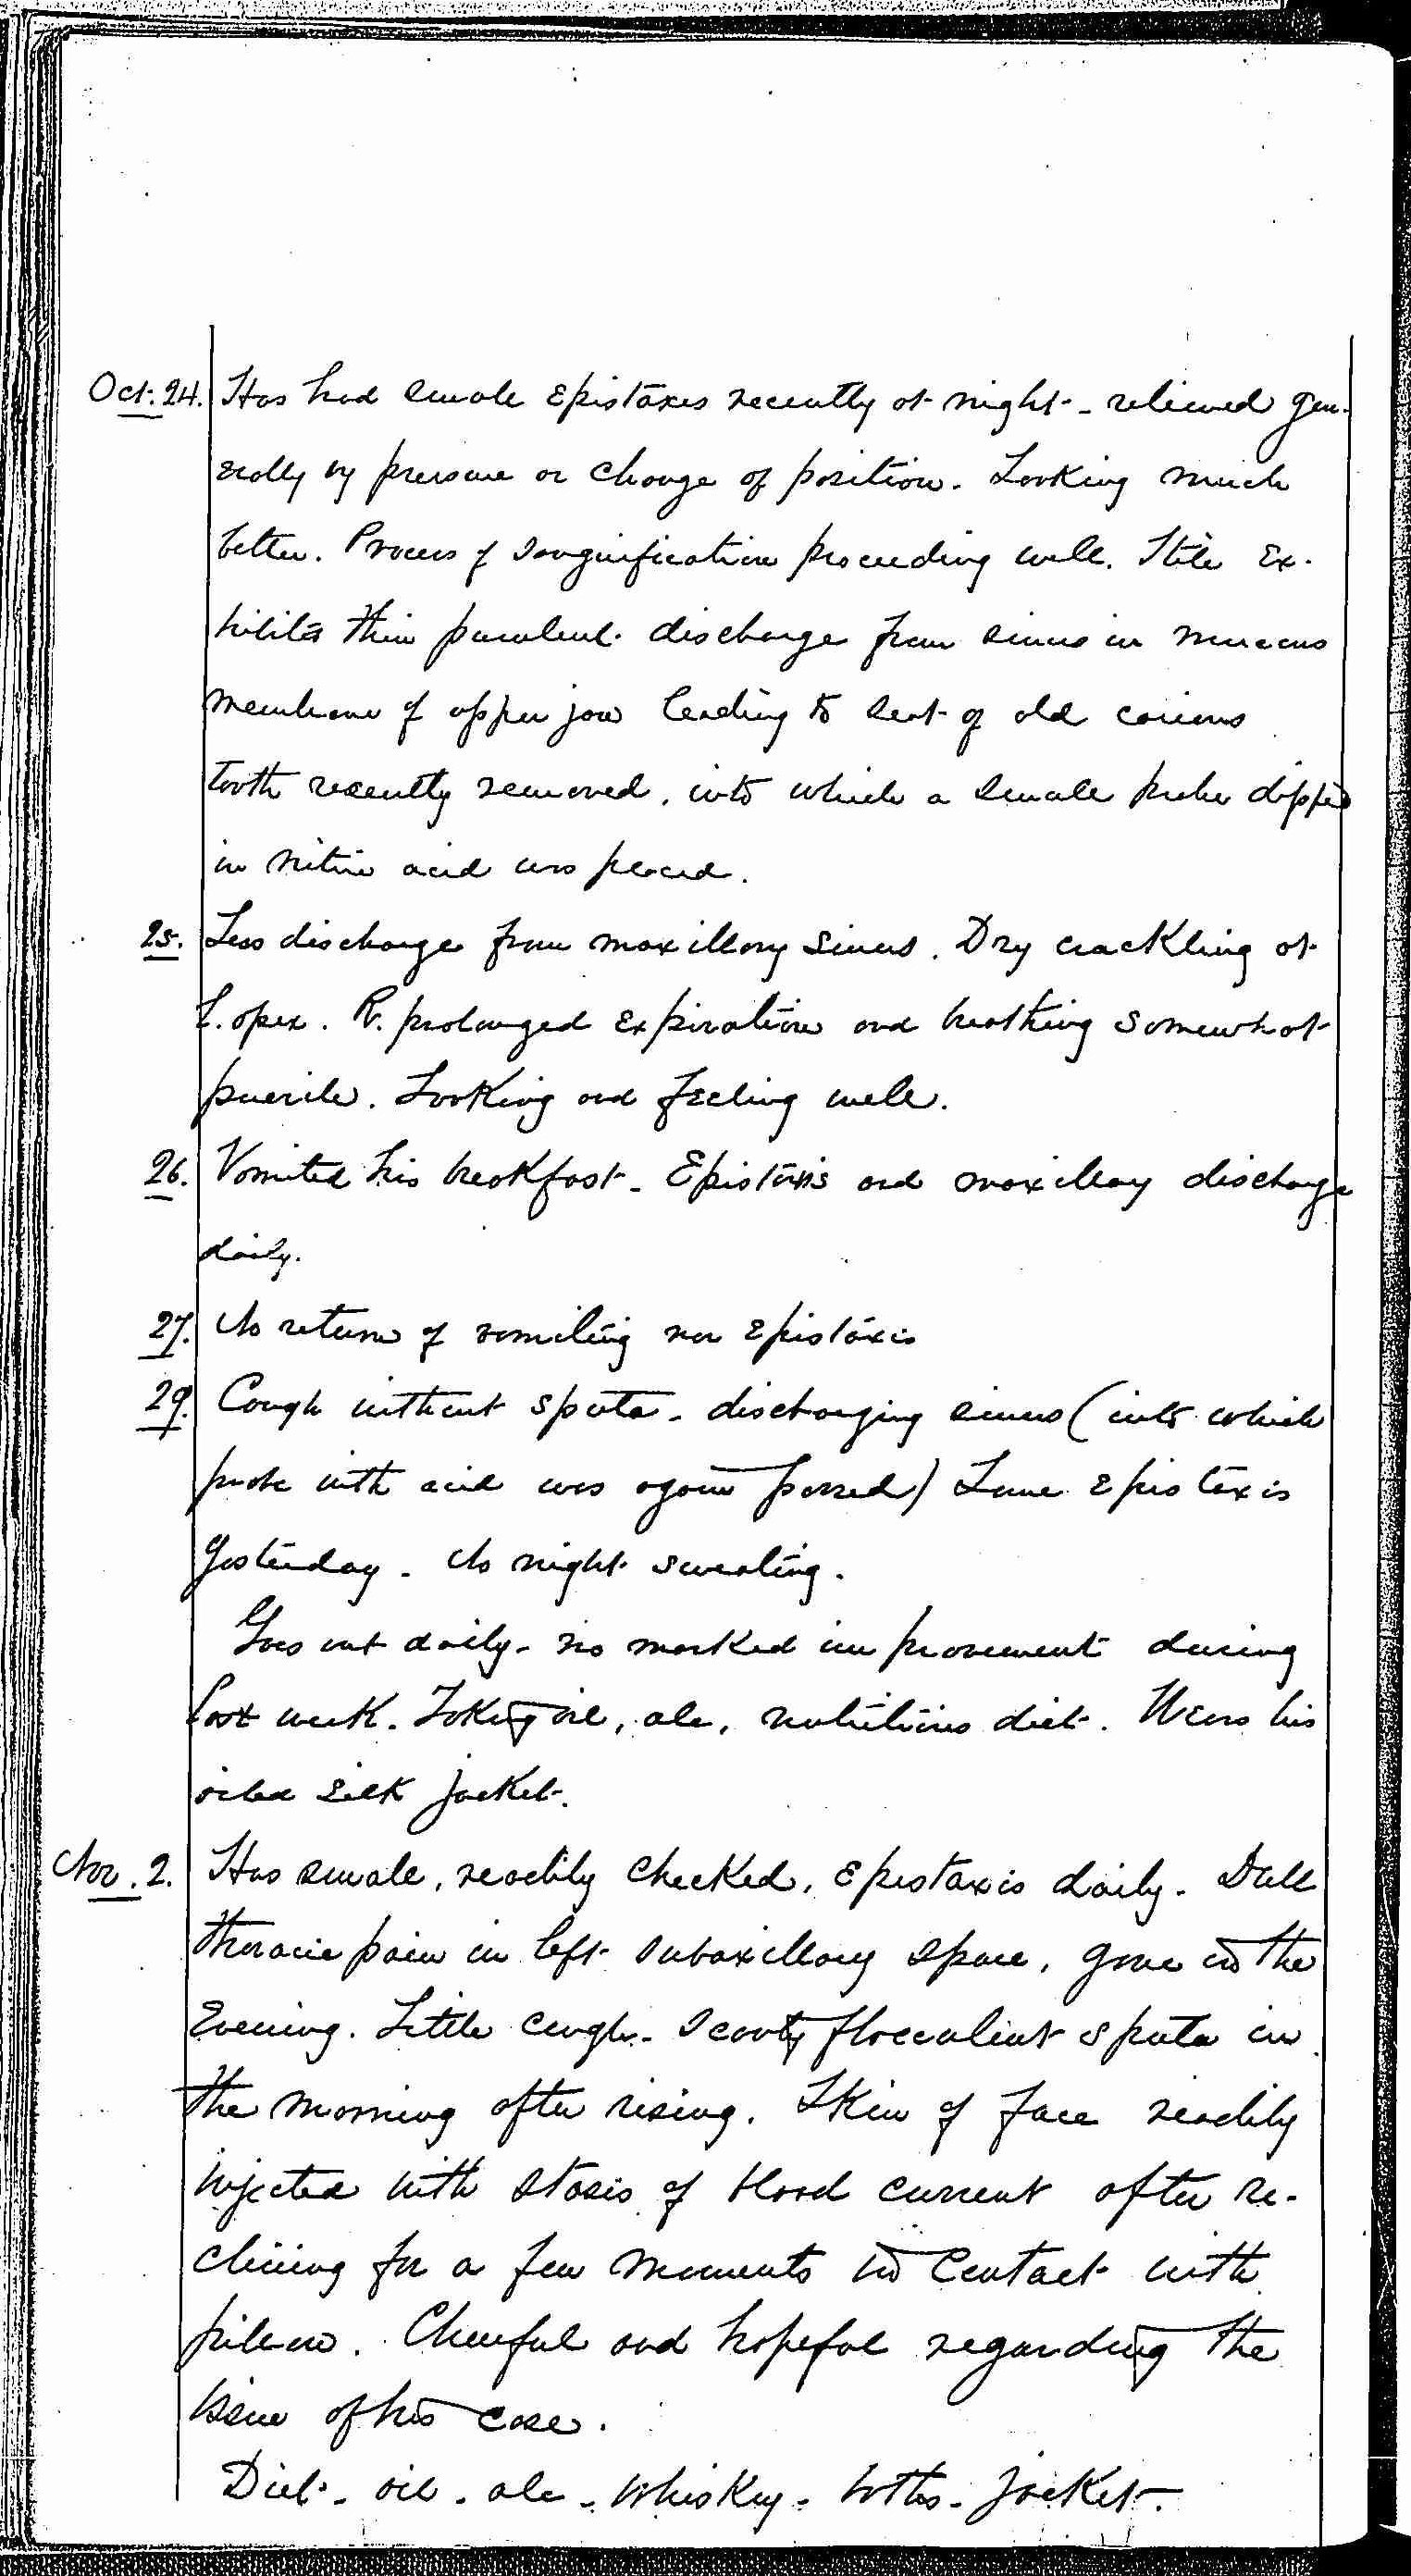 Oct. 24. Has had small Epistaxes recently at night - relieved gen-
erally by pressure or change of position. Looking much
better. Process of sanguification proceeding well. Still ex-
hibits thin purulent discharge from sinus in mucous
membrane of upper jaw leading to seat of old carious
tooth recently removed, into which a small probe dipped
in nitric acid was placed.
25. Less discharge from maxillary sinus. Dry crackling at
L. apex. R. prolonged expiration and breathing somewhat
puerile. Looking and feeling well.
26. Vomited his breakfast - Epistaxis and maxillary discharge
daily.
27. No return of vomiting nor Epistaxis
29. Cough without sputa - discharging sinus (into which
probe with acid was again passed) Some Epistaxis
yesterday - No night sweating.
Goes out daily - no marked improvement during
last week. Taking oil, ale, nutritious diet. Wears his
oiled silk jacket.
Nov. 2. Has small, readily checked, Epistaxis daily. Dull
thoracic pain in left subaxillary space, gone in the
Evening. Little cough - Scanty flocculent sputa in
the morning after rising. Skin of face readily
injected with stasis of blood current after re-
clining for a few moments in contact with
pillow. Cheerful and hopeful regarding the
issue of his case.
Diet - oil - ale - whiskey - baths - jacket.